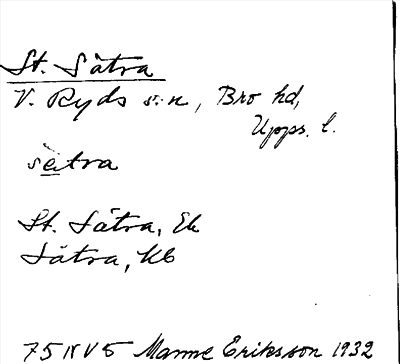 St. Sätra
V. Ryds s:n, Bro hd,
Upps. l.
sætra
St. Sätra, Ek
Sätra, Kb
75 NV 5 Manne Eriksson 1932